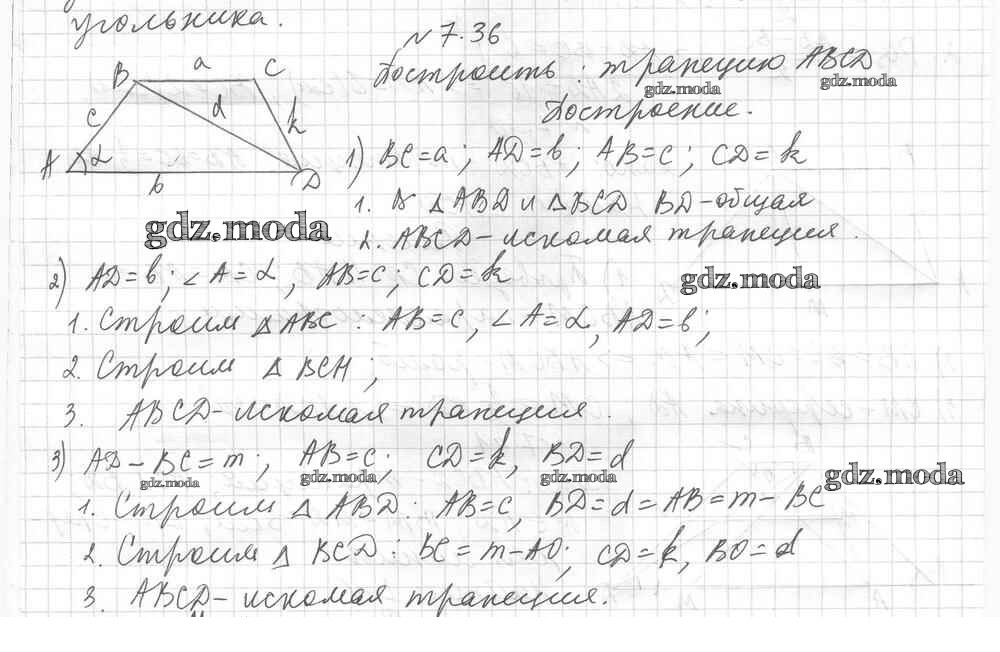 угольника.
№ 7.36
Построить: трапецию ABCD
gdz.moda gdz.moda
Построение.
B a C
c d k
A α b D
1) BC = a; AD = b; AB = c; CD = k
1. △ABD и △BCD BD - общая
2. ABCD - искомая трапеция.
gdz.moda
gdz.moda
2) AD = b; ∠A = α, AB = c; CD = k
1. Строим △ABC: AB = c, ∠A = α, AD = b;
2. Строим △BCH;
3. ABCD - искомая трапеция.
3) AD - BC = m; AB = c; CD = k, BD = d
gdz.moda gdz.moda gdz.moda gdz.moda
1. Строим △ABD: AB = c, BD = d = AB = m - BC
2. Строим △BCD: BC = m - AD; CD = k, BD = d
3. ABCD - искомая трапеция.